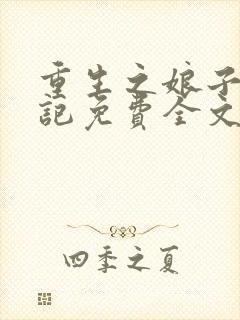 重生之娘子
记免费全文
四季之夏